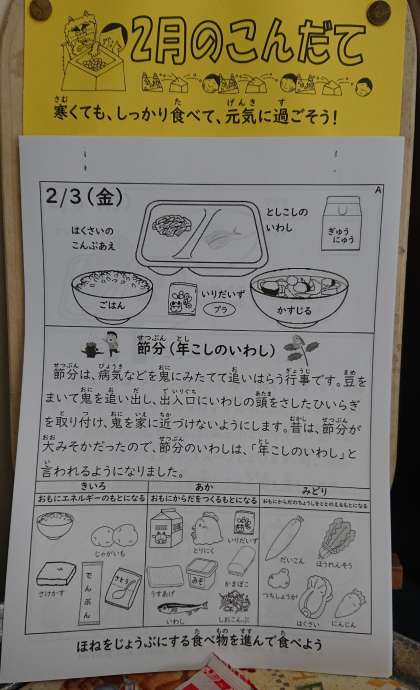 2月のこんだて
寒くても、しっかり食べて、元気に過ごそう!
2/3(金)
A
はくさいの
こんぶあえ
としこしの
いわし
ぎゅう
にゅう
ごはん
いりだいず
プラ
かすじる
節分(年こしのいわし)
節分は、病気などを鬼にみたてて追いはらう行事です。豆を
まいて鬼を追い出し、出入口にいわしの頭をさしたひいらぎ
を取り付け、鬼を家に近づけないようにします。昔は、節分が
大みそかだったので、節分のいわしは、「年こしのいわし」と
言われるようになりました。
きいろ
あか
みどり
おもにエネルギーのもとになる
おもにからだをつくるもとになる
おもにからだのちょうしをととのえるもとになる
じゃがいも
さけかす
でんぷん
さとう
とりにく
いりだいず
うすあげ
みそ
かまぼこ
いわし
しおこんぶ
だいこん
ほうれんそう
つちしょうが
はくさい
にんじん
ほねをじょうぶにする食べ物を進んで食べよう